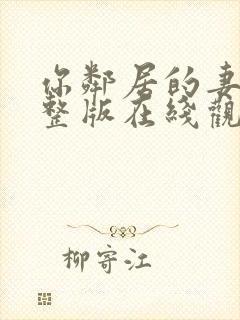 你鄰居的妻
整版在綫觀
柳寄江